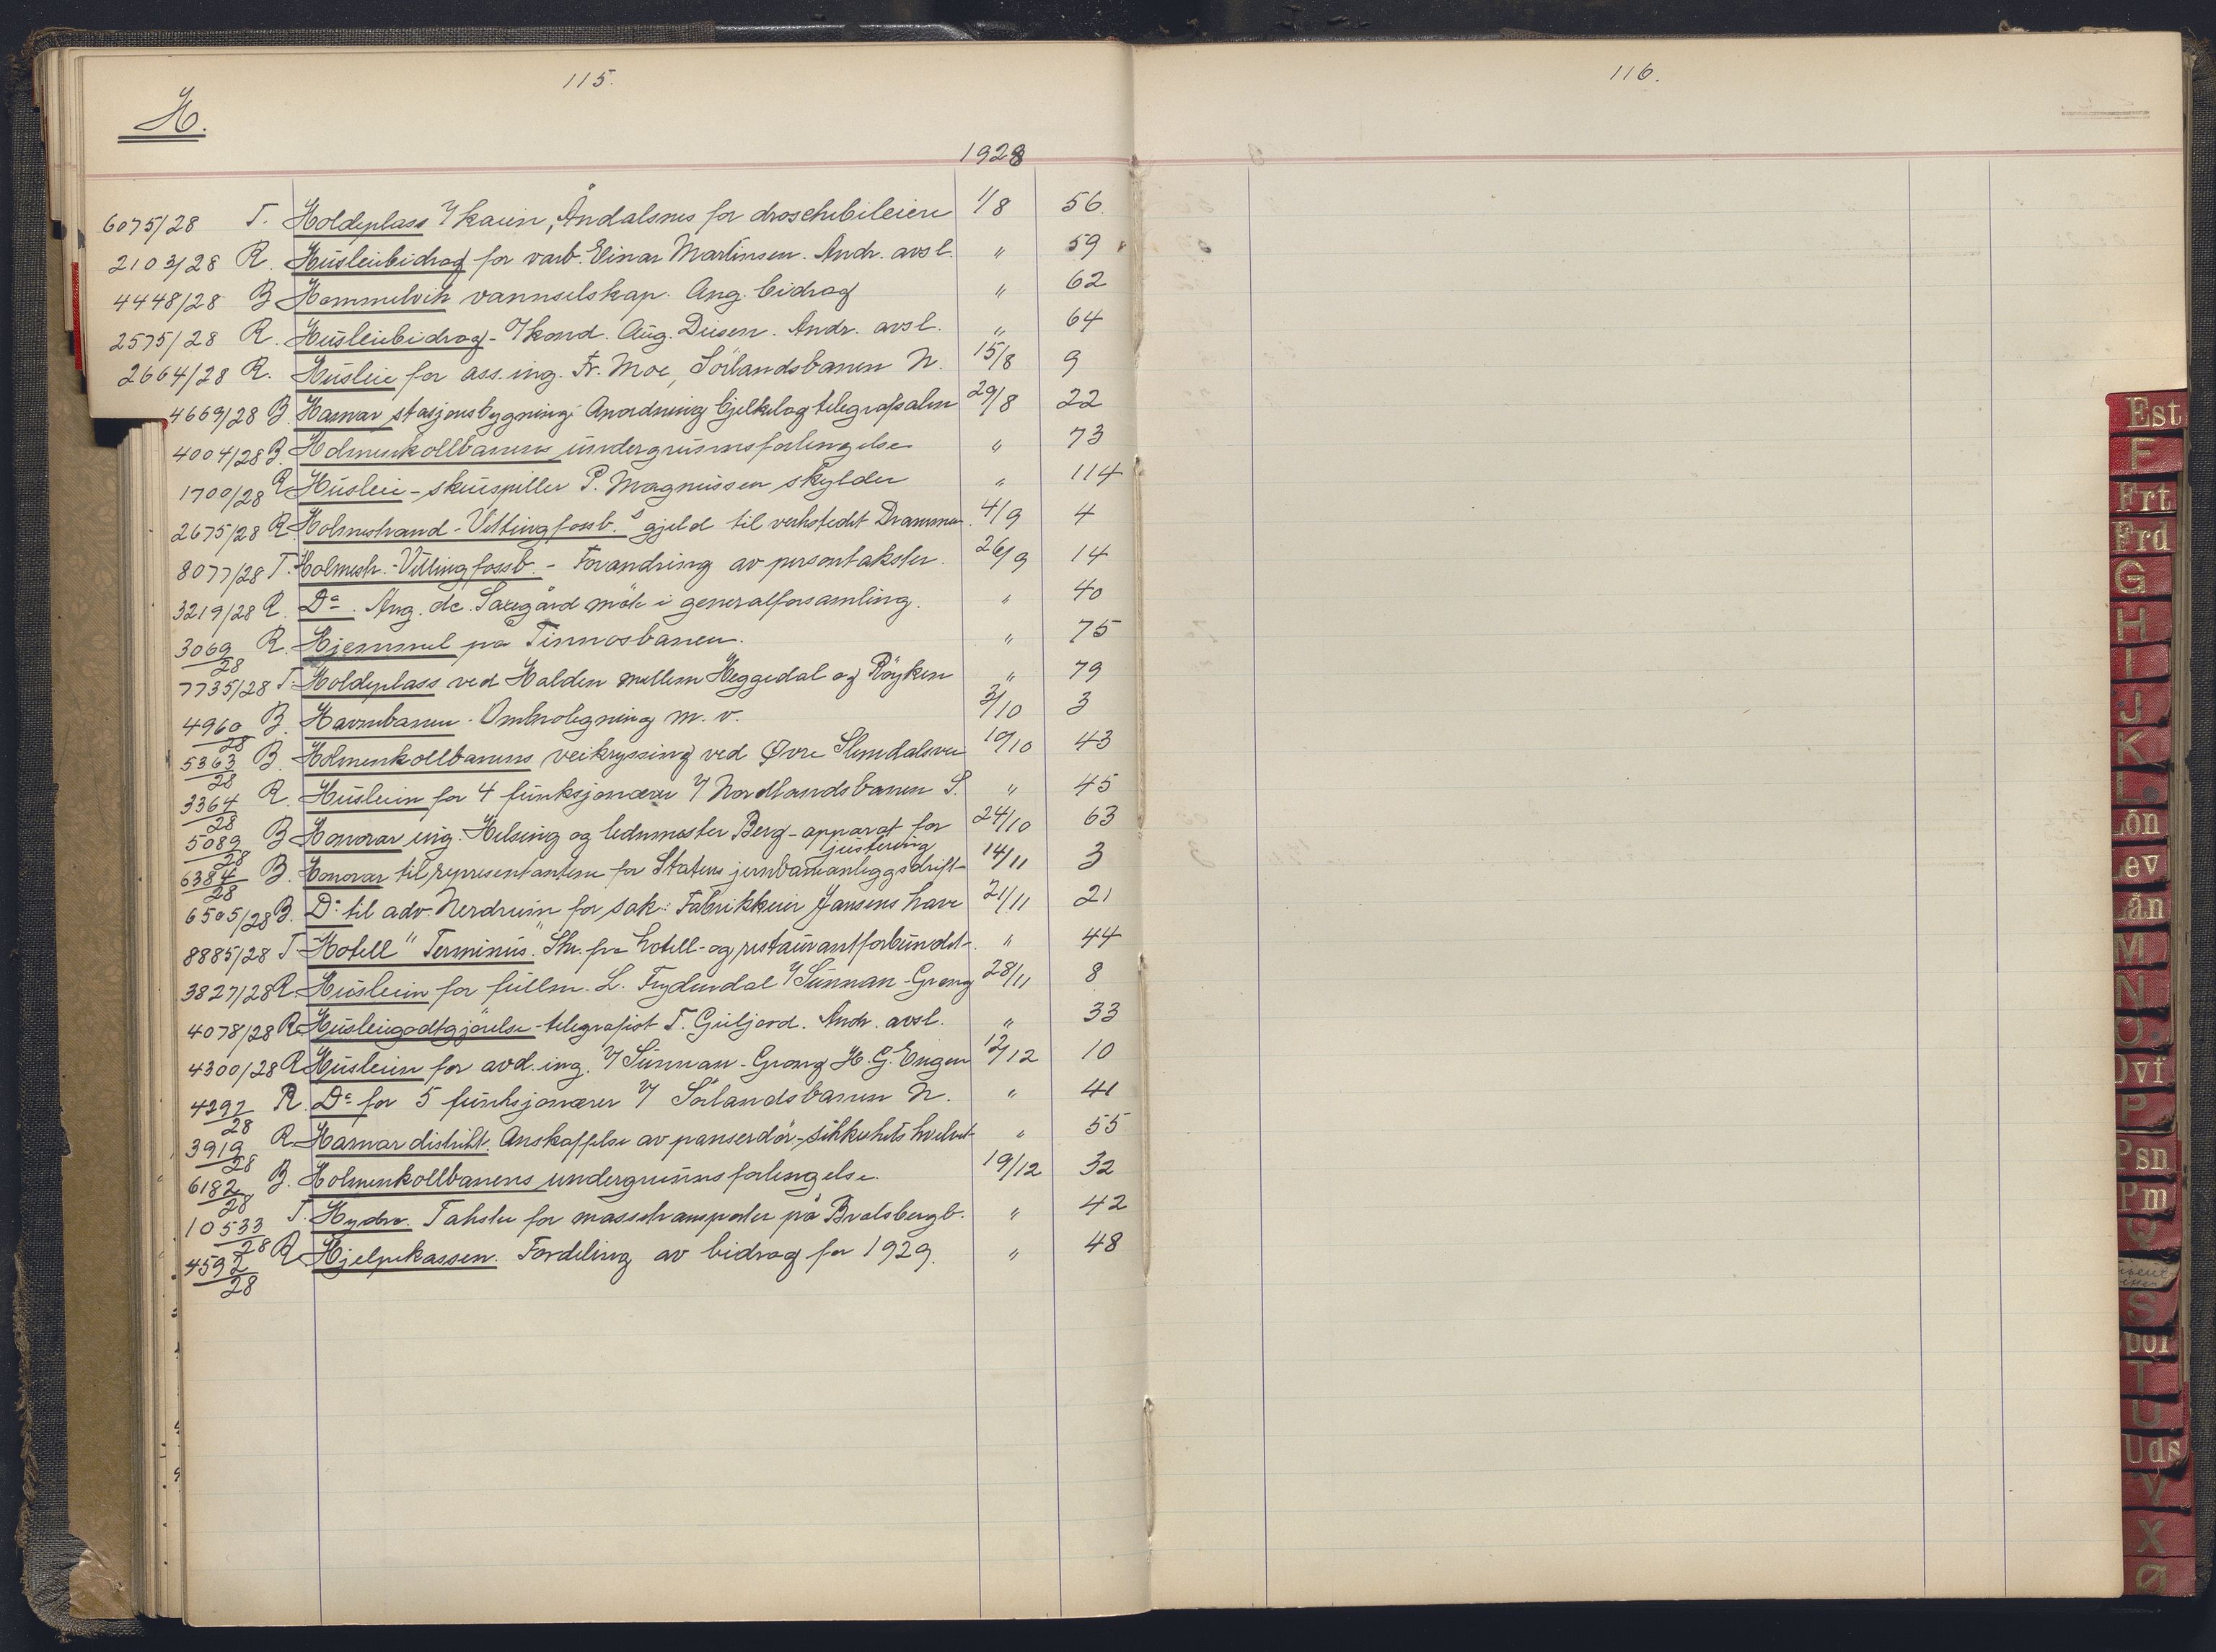 115.
H.
1928
6075/28 T. Holdeplass v/ kaien, Åndalsnes for droschebileiere 1/8 56
2103/28 R. Husleiebidrag for varb. Einar Martinsen. Andr. avsl. " 59
4448/28 B Hommelvik vannselskap. Ang. bidrag " 62
2575/28 R. Husleiebidrag - v/ kond. Aug. Diesen. Andr. avsl. " 64
2664/28 R. Husleie for ass. ing. Fr. Moe, Sörlandsbanen N. 15/8 9
4669/28 B. Hamar stasjonsbygning: Anordning bjelkelag telegrafsalen 29/8 22
4004/28 B. Holmenkollbanens undergrunnsforlengelse " 73
1700/28 R Husleie - skuespiller P. Magnussen skylder " 114
2675/28 R. Holmestrand - Vittingfossb.s gjeld til verkstedet Drammen. 4/9 4
8077/28 T. Holmestr. - Vittingfossb. - Forandring av persontakster. 26/9 14
3219/28 R. Do. Ang. dc. Saxegård möte i generalforsamling. " 40
3069/28 R. Hjemmel på Tinnosbanen. " 75
7735/28 T. Holdeplass ved Halden mellem Heggedal og Röyken " 79
4960/28 B. Havnebanen. Ombrolegning m. v. 3/10 3
5363/28 B. Holmenkollbanens veikryssing ved Øvre Slemdalsvei 10/10 43
3364/28 R. Husleien for 4 funksjonærer v/ Nordlandsbanen S. " 45
5089/28 B Honorar ing. Helsing og ledn.mester Berg - apparat for 24/10 63
justering
6384/28 B. Honorar til representantene for Statens jernbaneanleggsdrift 14/11 3
6505/28 B. Do til adv. Nerdrum for sak: Fabrikkeier Jansens have 21/11 21
8885/28 T Hotell "Terminus". Skr. fra hotell- og restaurantforbundet. " 44
3827/28 R. Husleien for fullm. L. Frydendal v/ Sunnan - Grong 28/11 8
4078/28 R. Husleiegodtgjörelse - telegrafist T. Guljord. Andr. avsl. " 33
4300/28 R Husleien for avd. ing. v/ Sunnan - Grong H. G. Engen 12/12 10
4297/28 R. Do for 5 funksjonærer v/ Sörlandsbanen N. " 41
3919/28 R. Hamar distrikt. Anskaffelse av panserdör - sikkerhetshvelvet " 55
6182/28 B. Holmenkollbanens undergrunnsforlengelse. 19/12 32
10533/28 T. Hydro. Takster for massetransporter på Bratsbergb. " 42
4592/28 R Hjelpekassen. Fordeling av bidrag for 1929. " 48
116.
Est
F
Frt
Frd
G
H
I
J
K
L
Lön
Lev
Lån
M
N
O
Ovf
P
Psn
Pm
Q
S
T
U
Uds
V
X
Ø